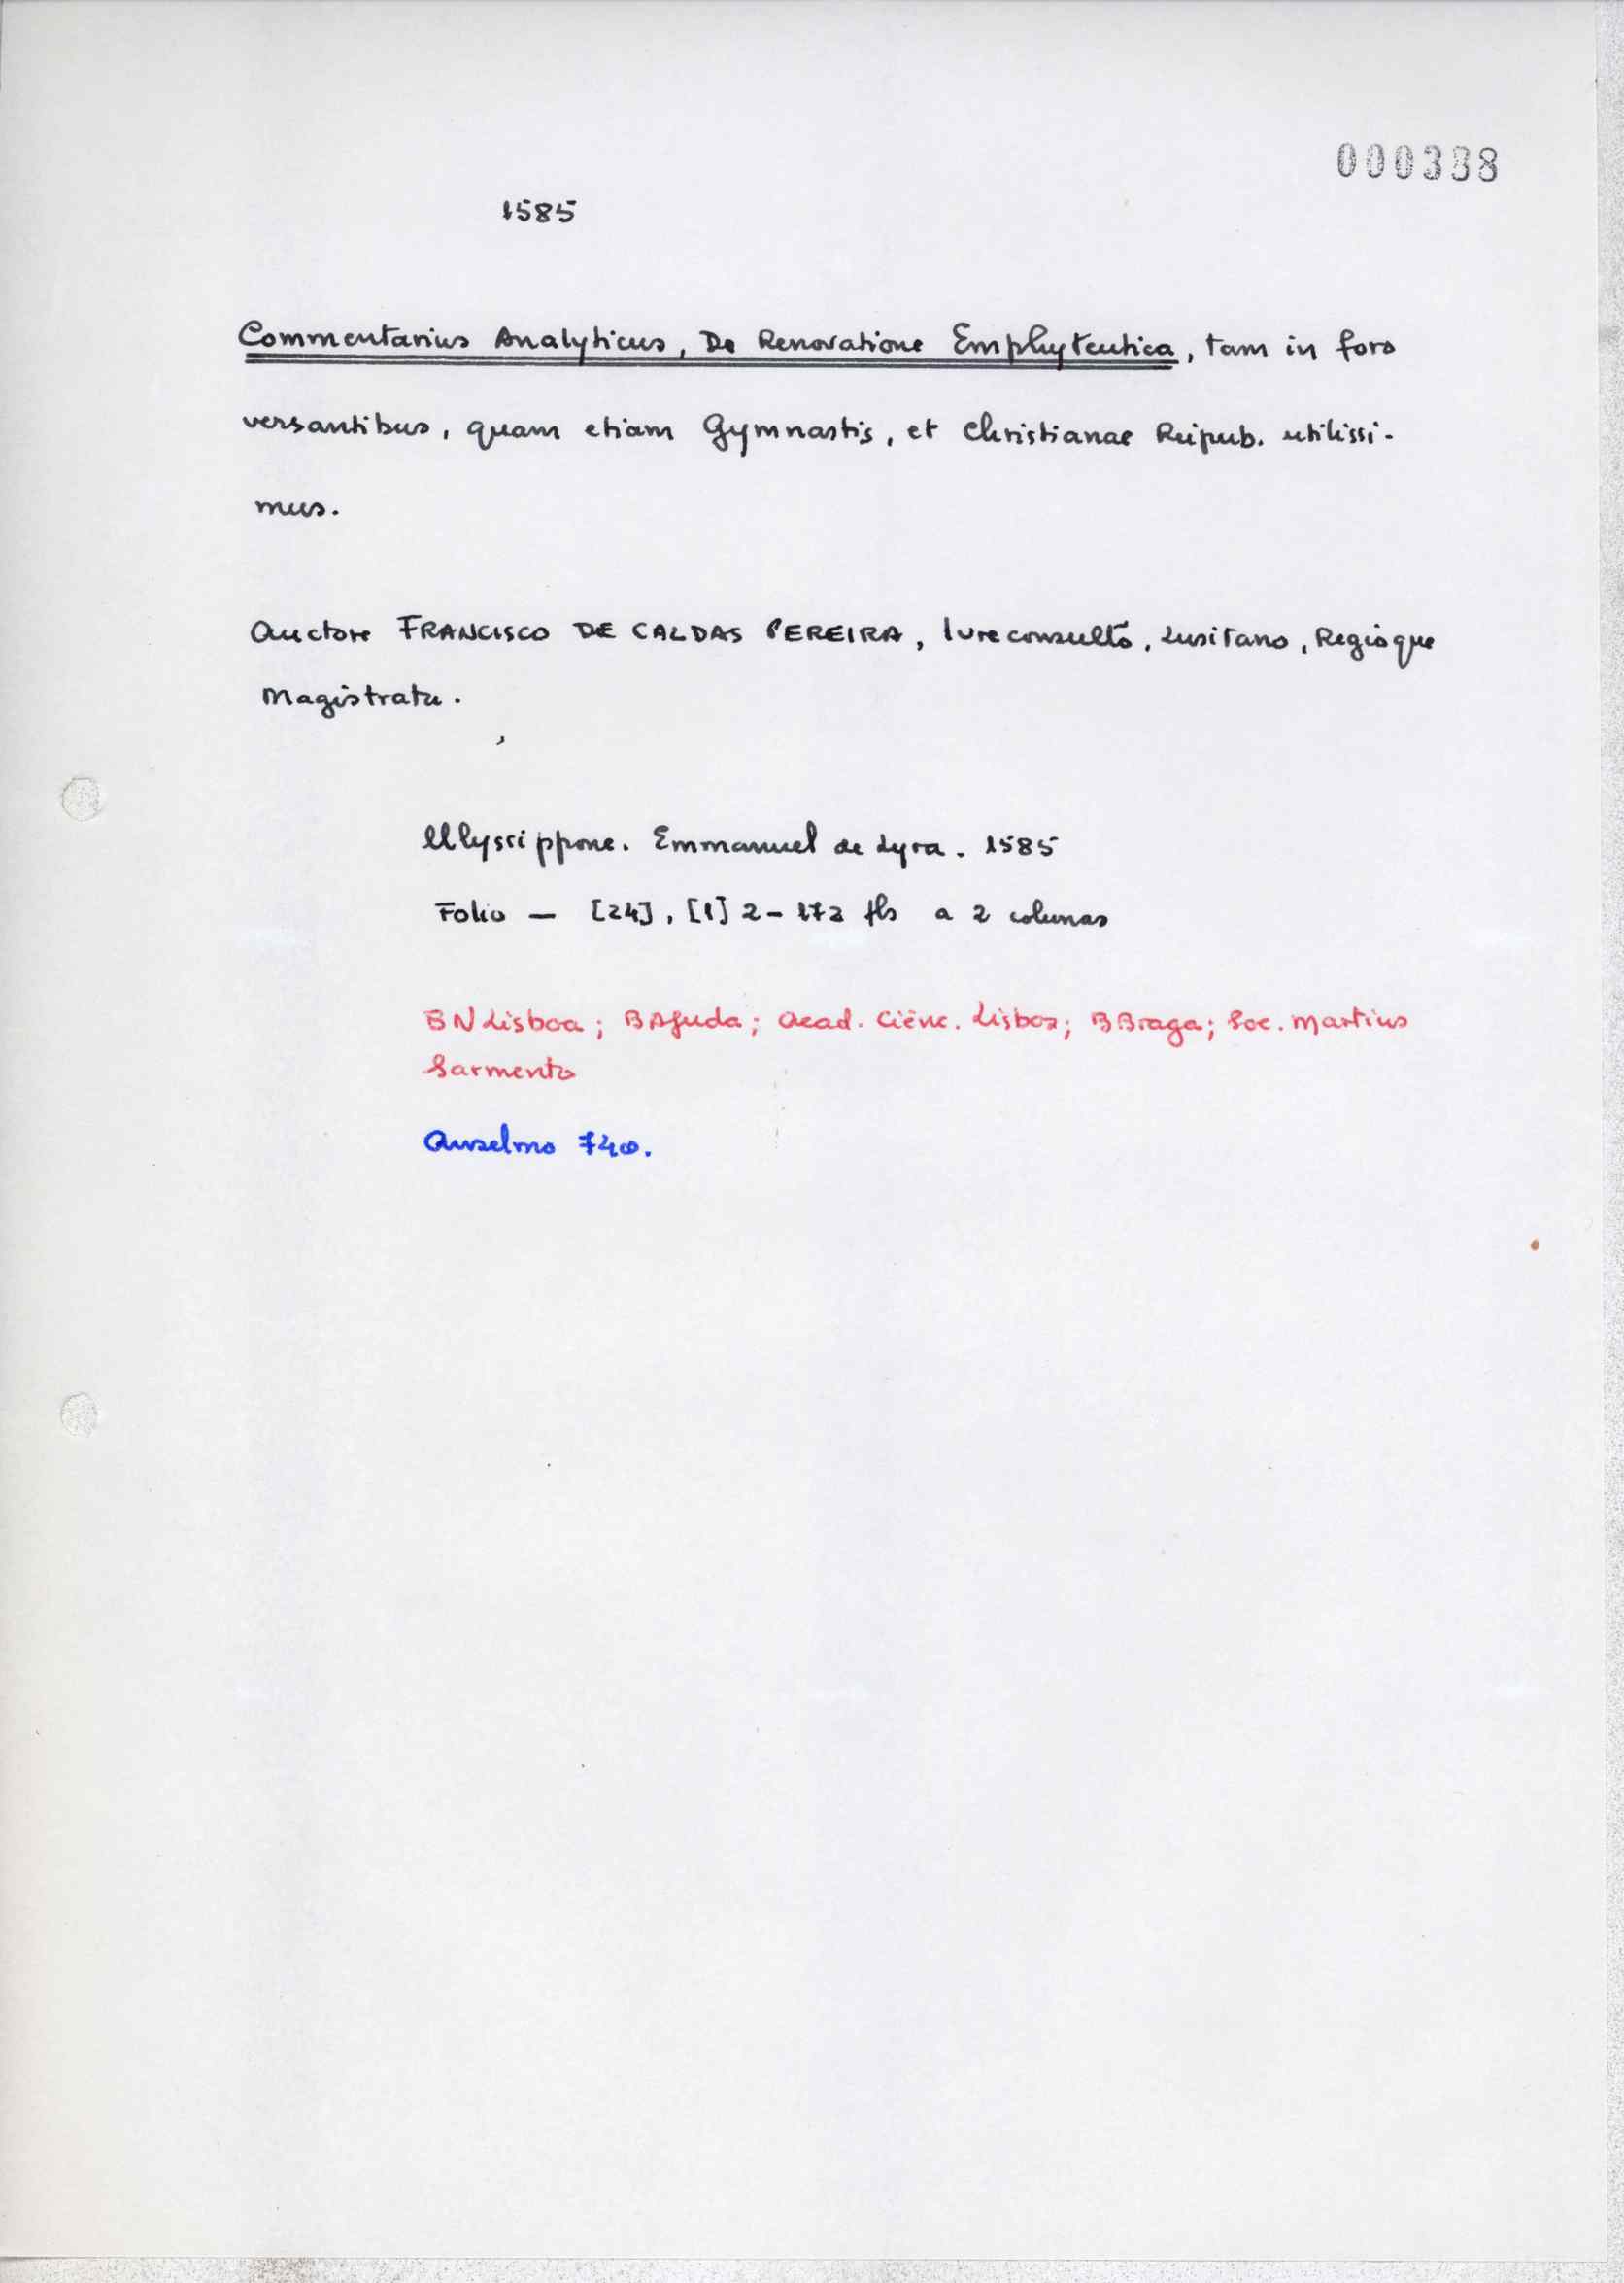 000338
1585
Commentarius Analyticus, De Renovatione Emphyteutica, tam in foro
versantibus, quam etiam Gymnastis, et Christianae Reipub. utilissi-
mus.
Auctore FRANCISCO DE CALDAS PEREIRA, Iureconsulto, Lusitano, Regioque
Magistratu.
Ulyssippone. Emmanuel de Lyra. 1585
Folio — [24], [1] 2-172 fls a 2 colunas
BN Lisboa; BAjuda; Acad. Ciênc. Lisboa; BBraga; Soc. Martins
Sarmento
Anselmo 740.